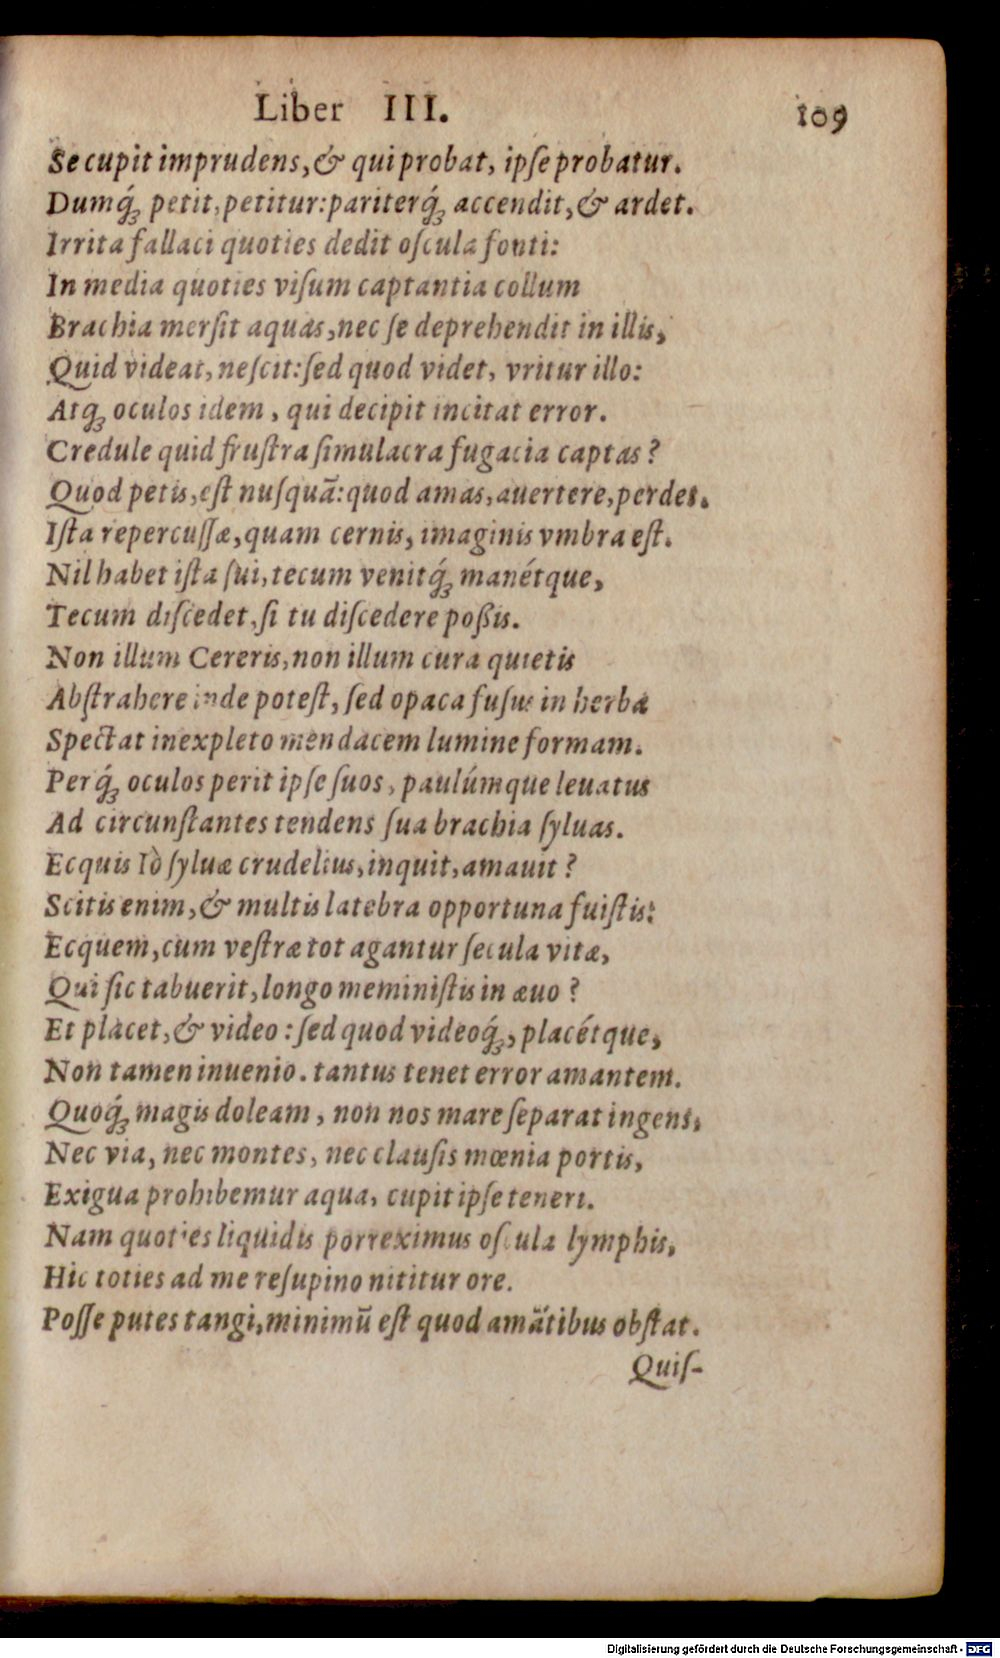 Liber III. 109
Se cupit imprudens, & qui probat, ipſe probatur.
Dumq́ꝫ petit, petitur: pariterq́ꝫ accendit, & ardet.
Irrita fallaci quoties dedit oſcula fonti:
In media quoties viſum captantia collum
Brachia merſit aquas, nec ſe deprehendit in illis,
Quid videat, neſcit: ſed quod videt, vritur illo:
Atqꝫ oculos idem, qui decipit incitat error.
Credule quid fruſtra ſimulacra fugacia captas?
Quod petis, eſt nuſquã: quod amas, auertere, perdes.
Iſta repercuſſæ, quam cernis, imaginis vmbra eſt.
Nil habet iſta ſui, tecum venitq́ꝫ manétque,
Tecum diſcedet, ſi tu diſcedere poßis.
Non illum Cereris, non illum cura quietis
Abſtrahere inde poteſt, ſed opaca fuſus in herba
Spectat inexpleto mendacem lumine formam.
Perq́ꝫ oculos perit ipſe ſuos, paulúmque leuatus
Ad circunſtantes tendens ſua brachia ſyluas.
Ecquis Iò ſyluæ crudelius, inquit, amauit?
Scitis enim, & multis latebra opportuna fuiſtis:
Ecquem, cum veſtræ tot agantur ſecula vitæ,
Qui ſic tabuerit, longo meminiſtis in æuo?
Et placet, & video: ſed quod videoq́ꝫ, placétque,
Non tamen inuenio. tantus tenet error amantem.
Quoq́ꝫ magis doleam, non nos mare ſeparat ingens,
Nec via, nec montes, nec clauſis mœnia portis,
Exigua prohibemur aqua, cupit ipſe teneri.
Nam quoties liquidis porreximus oſcula lymphis,
Hic toties ad me reſupino nititur ore.
Poſſe putes tangi, minimũ eſt quod amãtibus obſtat.
Quiſ-
Digitalisierung gefördert durch die Deutsche Forschungsgemeinschaft - DFG